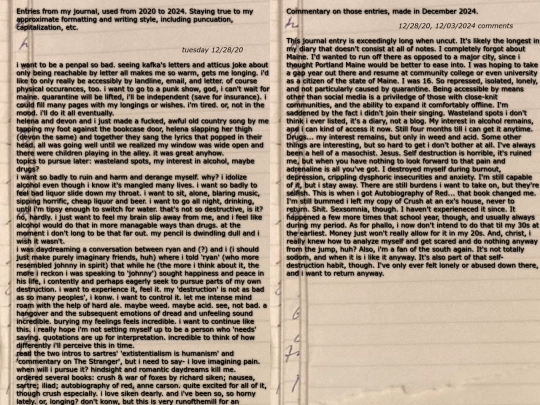 Entries from my journal, used from 2020 to 2024. Staying true to my
approximate formatting and writing style, including puncuation,
capitalization, etc.
tuesday 12/28/20
i want to be a penpal so bad. seeing kafka's letters and atticus joke about
only being reachable by letter all makes me so warm, gets me longing. i'd
like to only really be accessibly by landline, email, and letter. of course
physical occurances, too. i want to go to a punk show, god, i can't wait for
maine. quarantine will be lifted, i'll be independent (save for insurance). i
could fill many pages with my longings or wishes. i'm tired. or, not in the
mood. i'll do it eventually.
helena and devon and i just made a fucked, awful old country song by me
tapping my foot against the bookcase door, helena slapping her thigh
(devon the same) and together they sang the lyrics that popped in their
head. all was going well until we realized my window was wide open and
there were children playing in the alley. it was great anyhow.
topics to pursue later: wasteland spots, my interest in alcohol, maybe
drugs?
i want so badly to ruin and harm and derange myself. why? i idolize
alcohol even though i know it's mangled many lives. i want so badly to
feel bad liquor slide down my throat. i want to sit, alone, blaring music,
sipping horrific, cheap liquor and beer. i want to go all night, drinking,
until i'm tipsy enough to switch for water. that's not so destructive, is it?
no, hardly. i just want to feel my brain slip away from me, and i feel like
alcohol would do that in more managable ways than drugs. at the
moment i don't long to be that far out. my pencil is dwindling dull and i
wish it wasn't.
i was daydreaming a conversation between ryan and (?) and i (i should
just make purely imaginary friends, huh) where i told 'ryan' (who more
resembled johnny in spirit) that while he (the more i think about it, the
more i reckon i was speaking to 'johnny') sought happiness and peace in
his life, i contently and perhaps eagerly seek to pursue parts of my own
destruction. i want to experience it, feel it. my 'destruction' is not as bad
as so many peoples', i konw. i want to control it. let me intense mind
roam with the help of hard ale. maybe weed. maybe acid. see, not bad. a
hangover and the subsequent emotions of dread and unfeeling sound
incredible. burying my feelings feels incredible. i want to continue like
this. i really hope i'm not setting myself up to be a person who 'needs'
saving. quotations are up for interpretation. incredible to think of how
differently i'll perceive this in time.
read the two intros to sartres' 'existentialism is humanism' and
'commentary on The Stranger', but i need to say- i love imagining pain.
when will i pursue it? hindsight and romantic daydreams kill me.
ordered several books: crush & war of foxes by richard siken; nausea,
sartre; iliad; autobiography of red, anne carson. quite excited for all of it,
though crush especially. i love siken dearly. and i've been so, so horny
lately. or, longing? don't konw, but this is very runofthemill for an
Commentary on those entries, made in December 2024.
12/28/20, 12/03/2024 comments
This journal entry is exceedingly long when uncut. It's likely the longest in
my diary that doesn't consist at all of notes. I completely forgot about
Maine. I'd wanted to run off there as opposed to a major city, since I
thought Portland Maine would be better to ease into. I was hoping to take
a gap year out there and resume at community college or even university
as a citizen of the state of Maine. I was 16. So repressed, isolated, lonely,
and not particularly caused by quarantine. Being accessible by means
other than social media is a privilege of those with close-knit
communities, and the ability to expand it comfortably offline. I'm
saddened by the fact i didn't join their singing. Wasteland spots i don't
think i ever listed, it's a diary, not a blog. My interest in alcohol remains,
and i can kind of access it now. Still four months till i can get it anytime.
Drugs... my interest remains, but only in weed and acid. Some other
things are interesting, but so hard to get i don't bother at all. I've always
been a hell of a masochist. Jesus. Self destruction is horrible, it's ruined
me, but when you have nothing to look forward to that pain and
adrenaline is all you've got. I destroyed myself during burnout,
depression, crippling dysphoric insecurities and anxiety. I'm still capable
of it, but i stay away. There are still burdens i want to take on, but they're
selfish. This is when i got Autobiography of Red... that book changed me..
I'm still bummed i left my copy of Crush at an ex's house, never to
return. Shit. Sexsomnia, though. I haven't experienced it since. It
happened a few more times that school year, though, and usually always
during my period. As for phallo, i now don't intend to do that til my 30s at
the earliest. Money just won't really allow for it in my 20s. And, christ, i
really knew how to analyze myself and get scared and do nothing away
from the jump, huh? Also, I'm a fan of the south again. It's not totally
sodom, and when it is i like it anyway. It's also part of that self-
destruction habit, though. I've only ever felt lonely or abused down there,
and i want to return anyway.